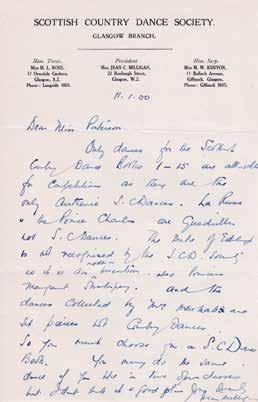 SCOTTISH COUNTRY DANCE SOCIETY.
GLASGOW BRANCH.
Hon. Treas.
Miss M. L. ROSS,
37 Overdale Gardens,
Glasgow, S.2.
Phone: Langside
President
Miss JEAN C. MILLIGAN,
22 Roxburgh Street,
Glasgow, W.2.
Hon. Secy.
Miss M. W. KENYON,
11 Balloch Avenue,
Giffnock, Glasgow.
Phone: Giffnock
11.1.50
Dear Miss Paterson
Only dances for the Scottish
Country Dance Books 1-15 are allowed
for Competitions as they are the
only authentic S.C Dances. La Russe
& the Prince Charles are Quadrilles
not S.C Dances. The Duke of Edinb
is not recognised by the S.C.D. Society
as it is an invention, also Princess
Margaret Strathspey. and the
dances collected by Mrs
set pieces not Country Dances.
So you must choose from a S.C Dance
Book. You may do the same
dance if you like in two
but I don't think it a good plan
Jean Milligan